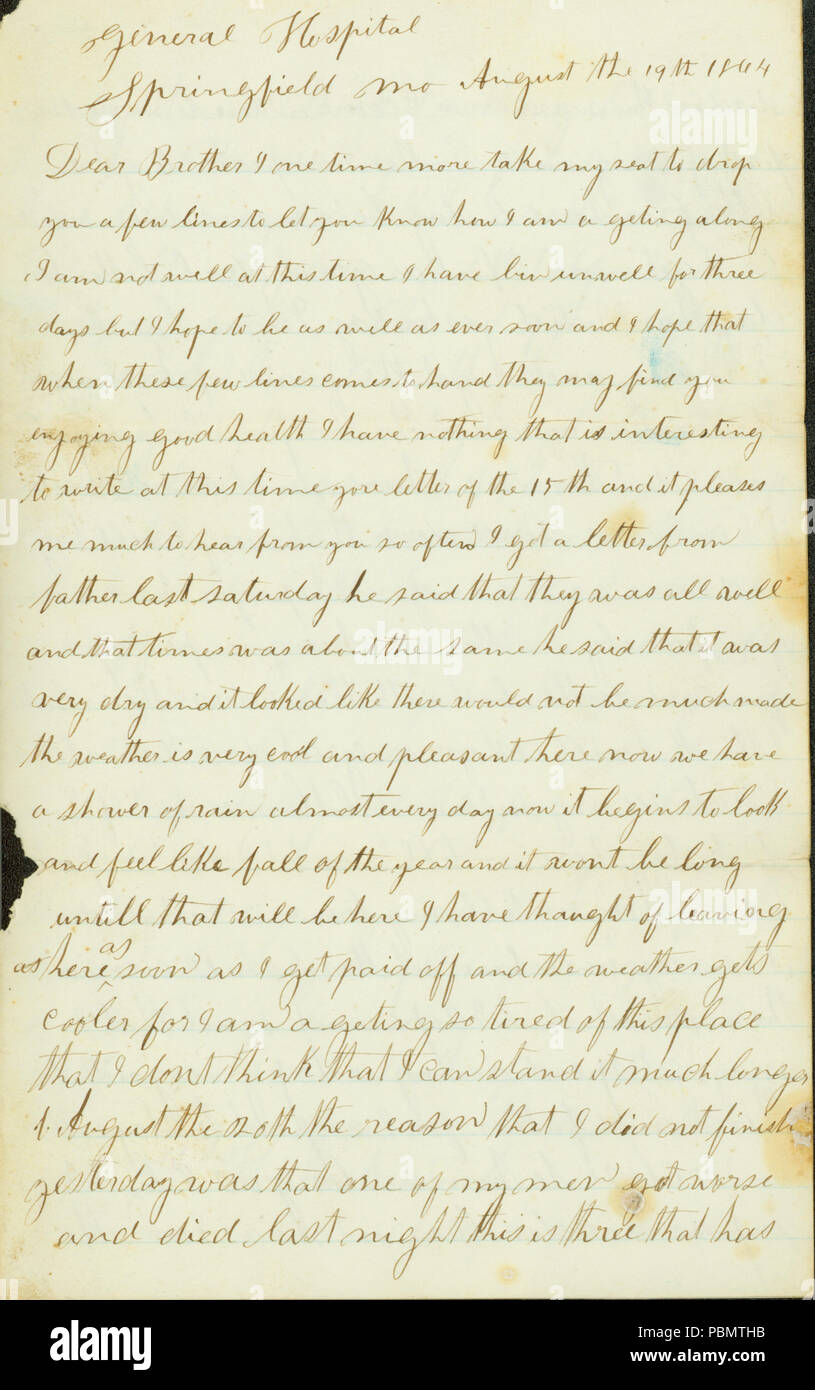 General Hospital
Springfield Mo August the 19th 1864
Dear Brother I one time more take my seat to drop
you a few lines to let you know how I am a geting along
I am not well at this time I have bin unwell for three
days but I hope to be as well as ever soon and I hope that
when these few lines comes to hand they may find you
enjoying good health I have nothing that is interesting
to write at this time yore letter of the 15th and it pleases
me much to hear from you so often I got a letter from
father last saturday he said that they was all well
and that times was about the same he said that it was
very dry and it looked like there would not be much made
the weather is very cool and pleasant here now we have
a shower of rain almost every day now it begins to look
and feel like fall of the year and it wont be long
untill that will be here I have thought of leaving
as here as soon as I get paid off and the weather gets
cooler for I am a geting so tired of this place
that I dont think that I can stand it much longer
August the 20th the reason that I did not finish
yesterday was that one of my men got worse
and died last night this is three that has
alamy
alamy stock photo
PBMTHB
www.alamy.com